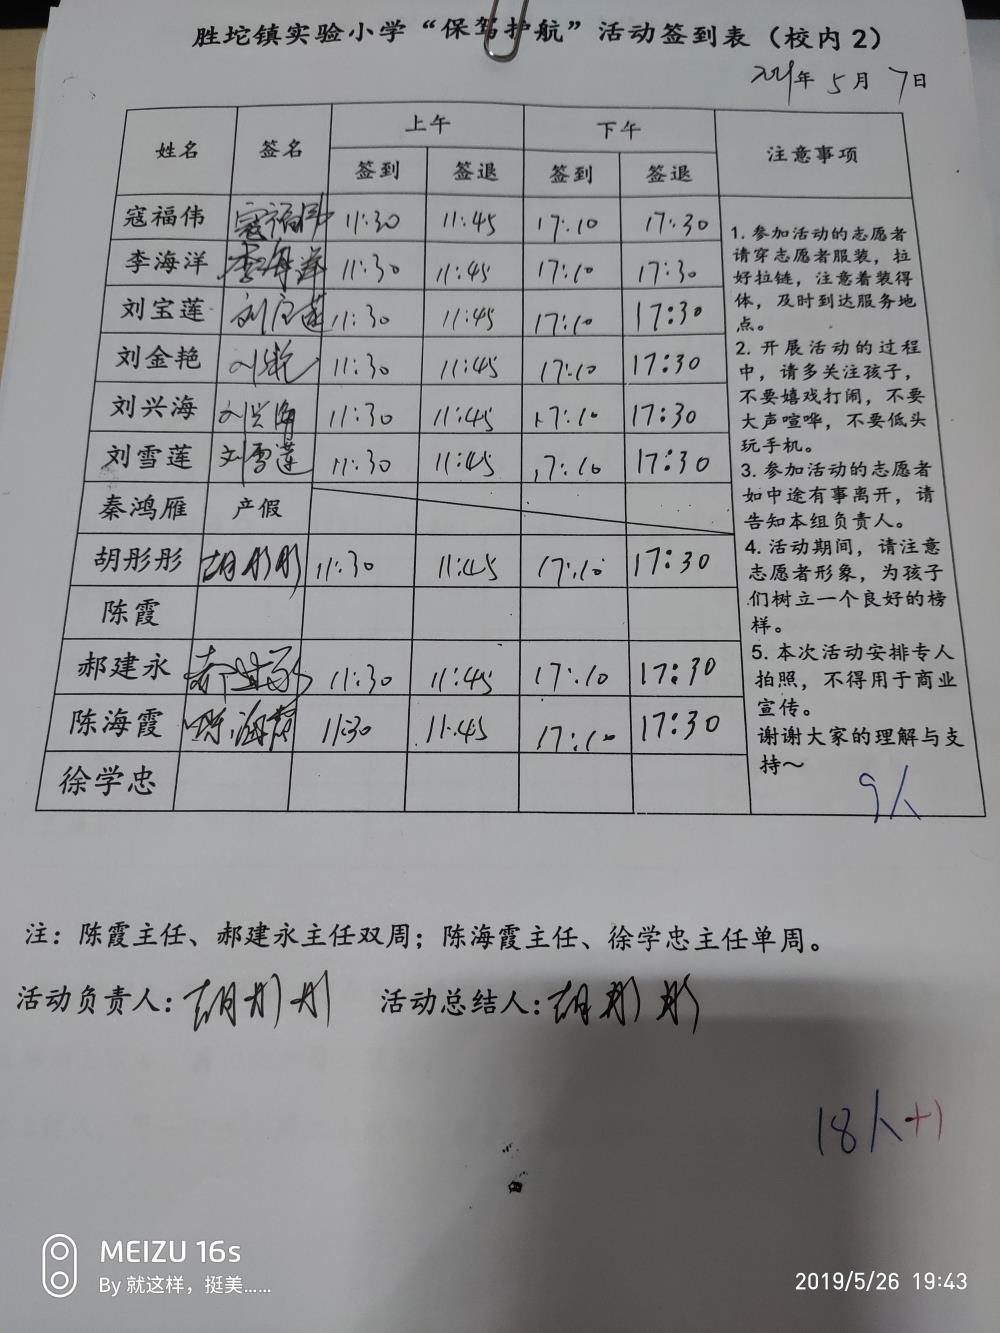 胜坨镇实验小学“保驾护航”活动签到表（校内2）
2019年 5月 7日
姓名 签名 上午 下午 注意事项
签到 签退 签到 签退
寇福伟 寇福伟 11:30 11:45 17:10 17:30
李海洋 李海洋 11:30 11:45 17:10 17:30
刘宝莲 刘宝莲 11:30 11:45 17:10 17:30
刘金艳 刘金艳 11:30 11:45 17:10 17:30
刘兴海 刘兴海 11:30 11:45 17:10 17:30
刘雪莲 刘雪莲 11:30 11:45 17:10 17:30
秦鸿雁 产假
胡彤彤 胡彤彤 11:30 11:45 17:10 17:30
陈霞
郝建永 郝建永 11:30 11:45 17:10 17:30
陈海霞 陈海霞 11:30 11:45 17:10 17:30
徐学忠
1. 参加活动的志愿者
请穿志愿者服装，拉
好拉链，注意着装得
体，及时到达服务地
点。
2. 开展活动的过程
中，请多关注孩子，
不要嬉戏打闹，不要
大声喧哗，不要低头
玩手机。
3. 参加活动的志愿者
如中途有事离开，请
告知本组负责人。
4. 活动期间，请注意
志愿者形象，为孩子
们树立一个良好的榜
样。
5. 本次活动安排专人
拍照，不得用于商业
宣传。
谢谢大家的理解与支
持～
9人
注：陈霞主任、郝建永主任双周；陈海霞主任、徐学忠主任单周。
活动负责人：胡彤彤 活动总结人：胡彤彤
18人+1
MEIZU 16s
By 就这样，挺美……
2019/5/26 19:43